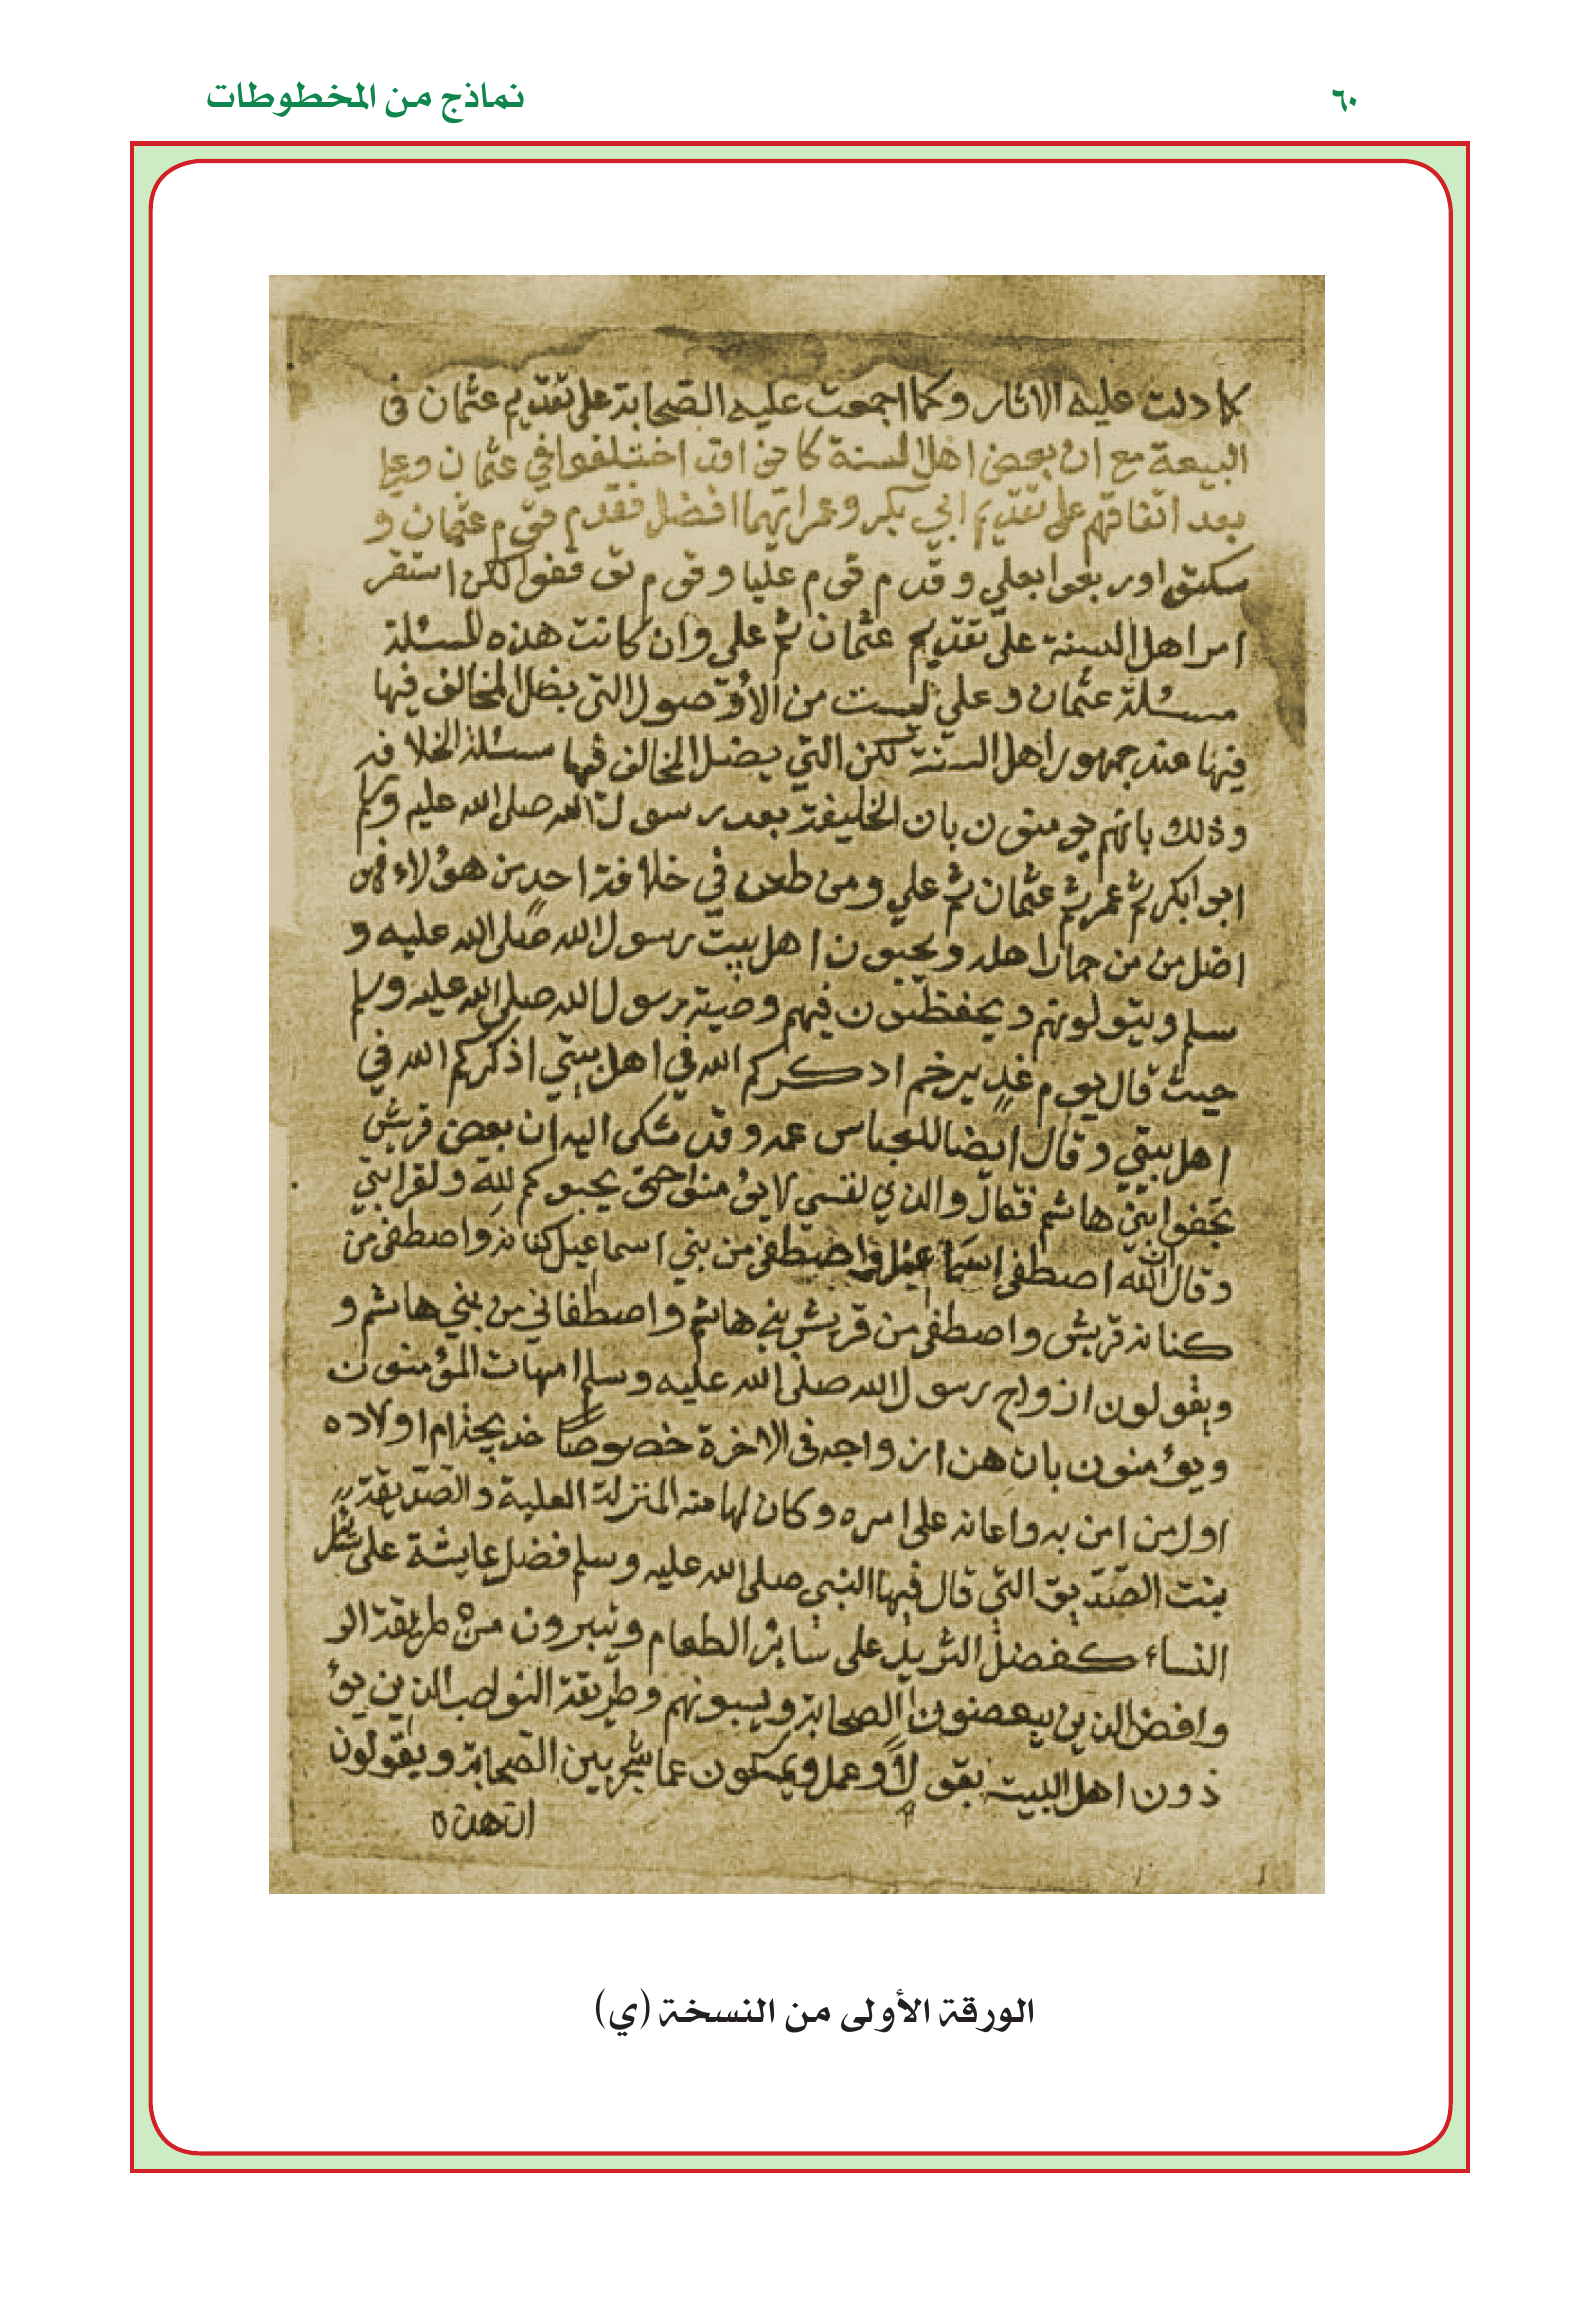 ٦٠
نماذج من المخطوطات
كما دلت عليه الاثار وكما اجمعت عليه الصحابة على تقديم عثمان في
البيعة مع ان بعض اهل السنة كانوا قد اختلفوا في عثمان وعلي
بعد اتفاقهم على تقديم ابي بكر وعمر ايهما افضل فقدم قوم عثمان و
سكتوا وربعوا بعلي وقدم قوم عليا وقوم توقفوا لكن استقر
امر اهل السنة على تقديم عثمان ثم علي وان كانت هذه المسئلة
مسئلة عثمان وعلي ليست من الاصول التي يضل المخالف فيها
فيها عند جمهور اهل السنة لكن التي يضل المخالف فيها مسئلة الخلافة
وذلك بانهم يومنون بان الخليفة بعد رسول الله صلى الله عليه وسلم
ابوا بكر ثم عمر ثم عثمان ثم علي ومن طعن في خلافة احد من هؤلاء فهو
اضل من من حمار اهله ويحبون اهل بيت رسول الله صلى الله عليه و
سلم ويتولونهم ويحفظون فيهم وصية رسول الله صلى الله عليه وسلم
حيث قال يوم غدير خم اذكركم الله في اهل بيتي اذكركم الله في
اهل بيتي وقال ايضا للعباس عمه وقد شكى اليه ان بعض قريش
تجفوا بني هاشم فقال والذي نفسي لا يؤمنوا حتى يحبوكم لله ولقرابتي
وقال ان الله اصطفى اسماعيل واصطفى من بني اسماعيل كنانة واصطفى من
كنانة قريش واصطفى من قريش بني هاشم واصطفاني من بني هاشم و
ويقولون ازواج رسول الله صلى الله عليه وسلم امهات المؤمنون
ويؤمنون بان هن ازواجه في الاخرة خصوصا خديجة ام اولاده
اول من امن به واعانه على امره وكان لها منه المنزلة العلية والصديقة
بنت الصديق التي قال فيها النبي صلى الله عليه وسلم فضل عايشة على
النساء كفضل الثريد على سائر الطعام ويتبرون من طريقة الر
وافض الذين يبغضون الصحابة ويسبونهم وطريقة النواصب الذين يؤ
ذون اهل البيت بقول او عمل ويمسكون عما شجر بين الصحابة ويقولون
ان هذه
الورقة الأولى من النسخة (ي)